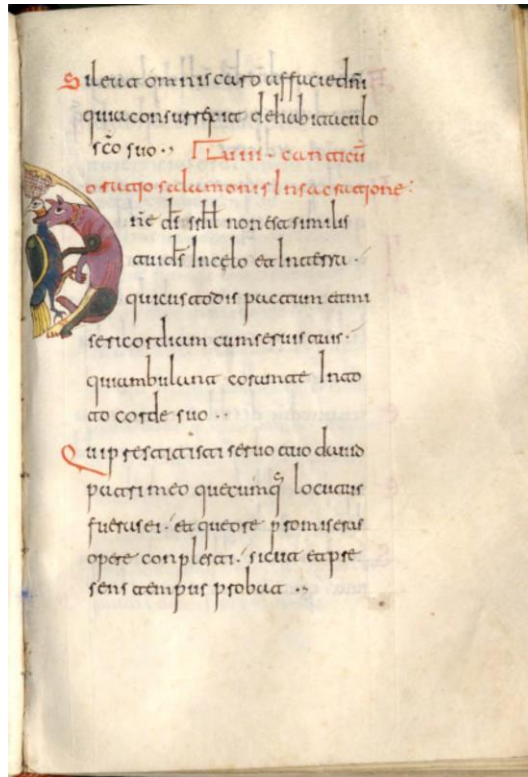 Sileat omnis caro a facie dn̄i
quia consurrexit de habitaculo
sc̄o suo
LVIIII canticū
oratio salamonis In sacratione
Dn̄e ds̄ isrhl non est similis
tui ds̄ In celo et In terra
qui custodis pactum et mi
sericordiam cum servis tuis
qui ambulant coram te In to
to corde suo
Qui prestitisti servo tuo david
patri meo quecumq̄ locutus
fueras ei et que ore promiseras
opere conplesti sicut et pre
sens tempus probat